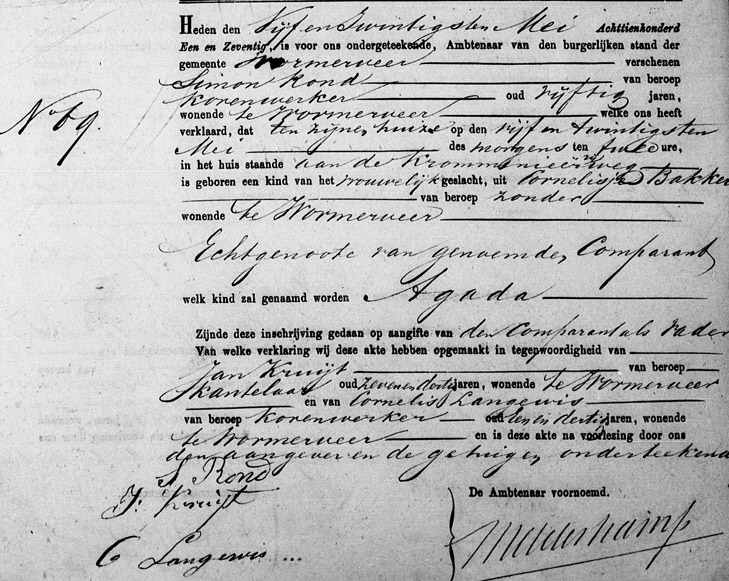 Heden den Vijf en Twintigsten Mei Achttienhonderd
Een en Zeventig, is voor ons ondergeteekende, Ambtenaar van den burgerlijken stand der
gemeente Wormerveer verschenen
Simon Rond van beroep
Korenwerker oud vijftig jaren,
No 69.
wonende te Wormerveer welke ons heeft
verklaard, dat ten zijnen huize op den vijf en twintigsten
Mei des morgens ten twee ure,
in het huis staande aan de Krommenieerweg
is geboren een kind van het vrouwelijk geslacht, uit Cornelisje Bakker
van beroep zonder
wonende te Wormerveer
Echtgenoote van genoemden Comparant
welk kind zal genaamd worden Agada
Zijnde deze inschrijving gedaan op aangifte van den Comparant als vader
Van welke verklaring wij deze akte hebben opgemaakt in tegenwoordigheid van
Jan Kruijt van beroep
oud zevenendertig jaren, wonende te Wormerveer
en van Cornelis Langewis
van beroep Korenwerker oud Een en dertig jaren, wonende
te Wormerveer en is deze akte na voorlezing door ons
den aangever en de getuigen onderteekend
S. Rond
J. Kruijt
De Ambtenaar voornoemd.
C Langewis